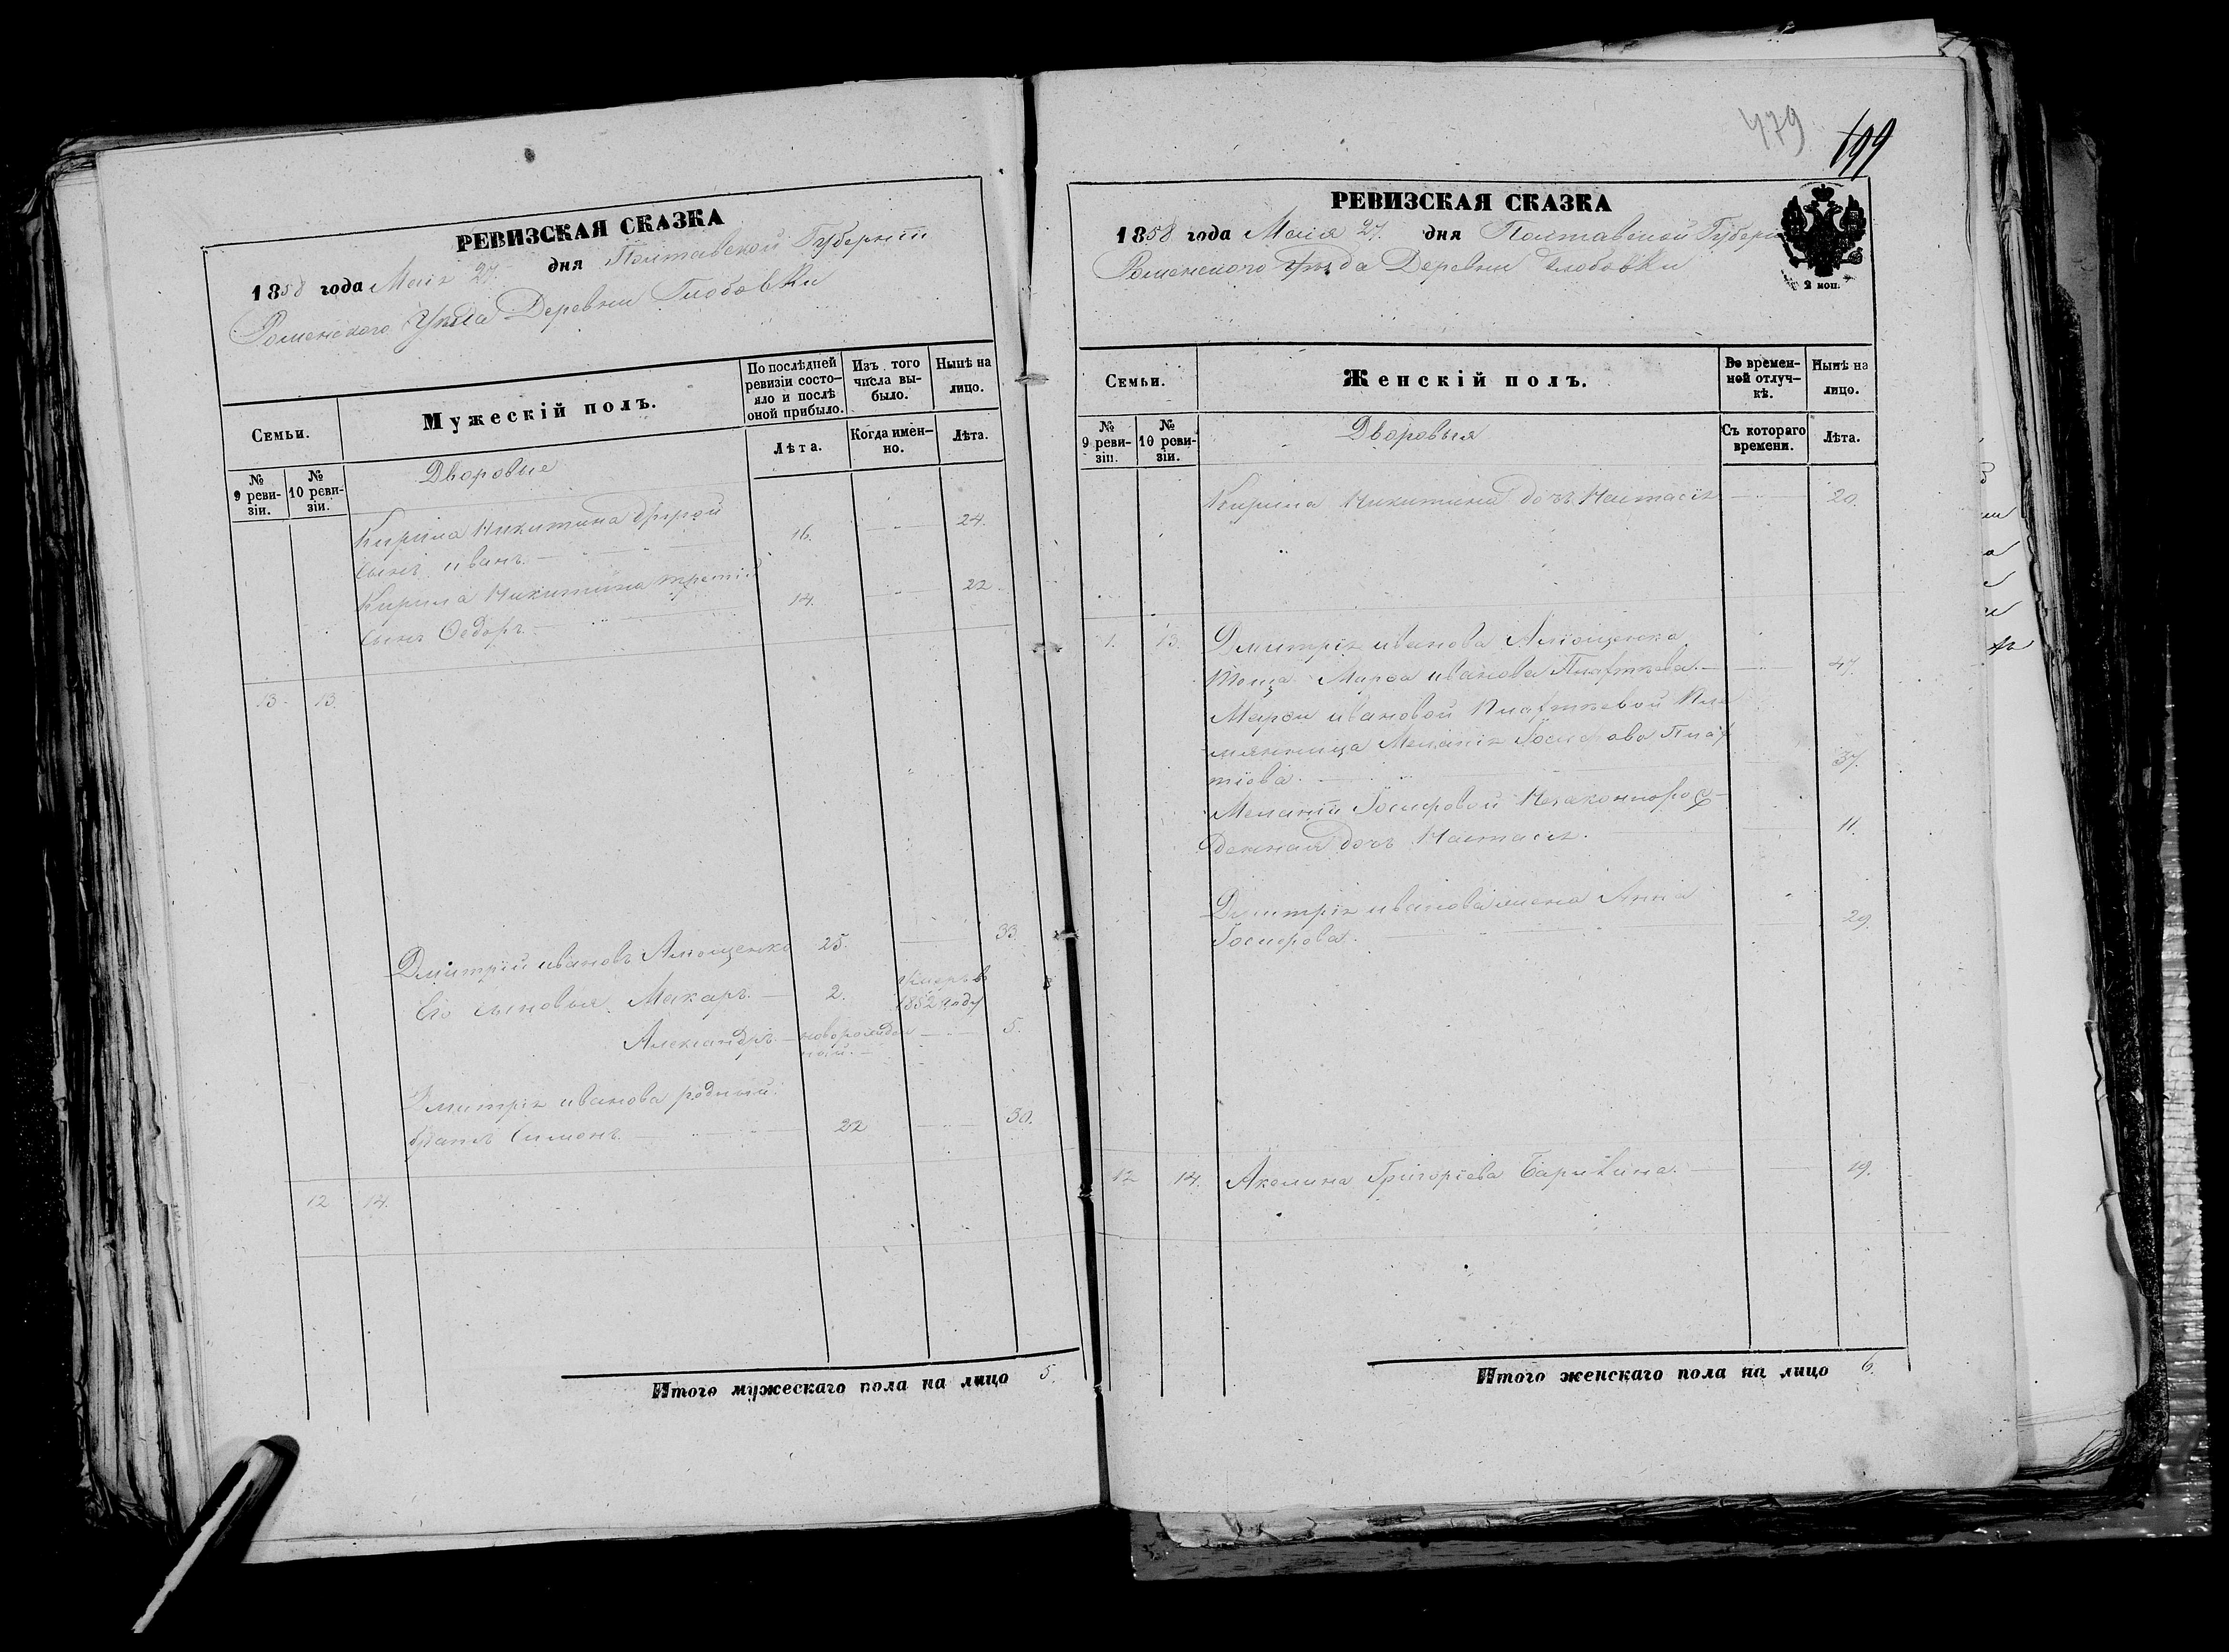 РЕВИЗСКАЯ СКАЗКА
1858 года Маія 27 дня Полтавской Губерніи
Роменского Уѣзда Деревни Глобовки
Семьи.
Мужескій полъ.
По послѣдней ревизіи состо-
яло и послѣ
оной прибыло.
Изъ того
числа вы-
было.
Нынѣ на
лицо.
№
9 реви-
зіи.
№
10 реви-
зіи.
Дворовые
Лѣта.
Когда имен-
но.
Лѣта.
Кирила Никитина другой
сынъ иванъ 16. 24.
Кирила Никитина третій
сынъ Ѳедоръ 14. 22.
13. 13.
Дмитрій ивановъ 25. 33.
Его сыновья Макаръ 2. 1852 году
Александръ новорожден
ный 5.
Дмитрія иванова родный
братъ Симонъ 22 30.
12 14.
Итого мужескаго пола на лицо 5.
479
199
РЕВИЗСКАЯ СКАЗКА
1858 года Маія 27 дня Полтавской Губерн
Роменского Уѣзда Деревни Глобовки
2 коп.
Семьи.
Женскій полъ.
Во времен-
ной отлуч-
кѣ.
Нынѣ на
лицо.
№
9 реви-
зіи.
№
10 реви-
зіи.
Дворовыя
Съ котораго
времени.
Лѣта.
Кирила Никитина дочь Настасія 20.
13. Дмитрія иванова
Марѳа иванова 47.
Марѳы ивановой Пле
мянница Меланія Іосифова 37.
Меланіи Іосифовой Незаконнорож
денная дочь Настасія 11.
Дмитрія иванова жена Анна
Іосифова. 29.
12 14. Акелина Григоріева 19.
Итого женскаго пола на лицо 6.